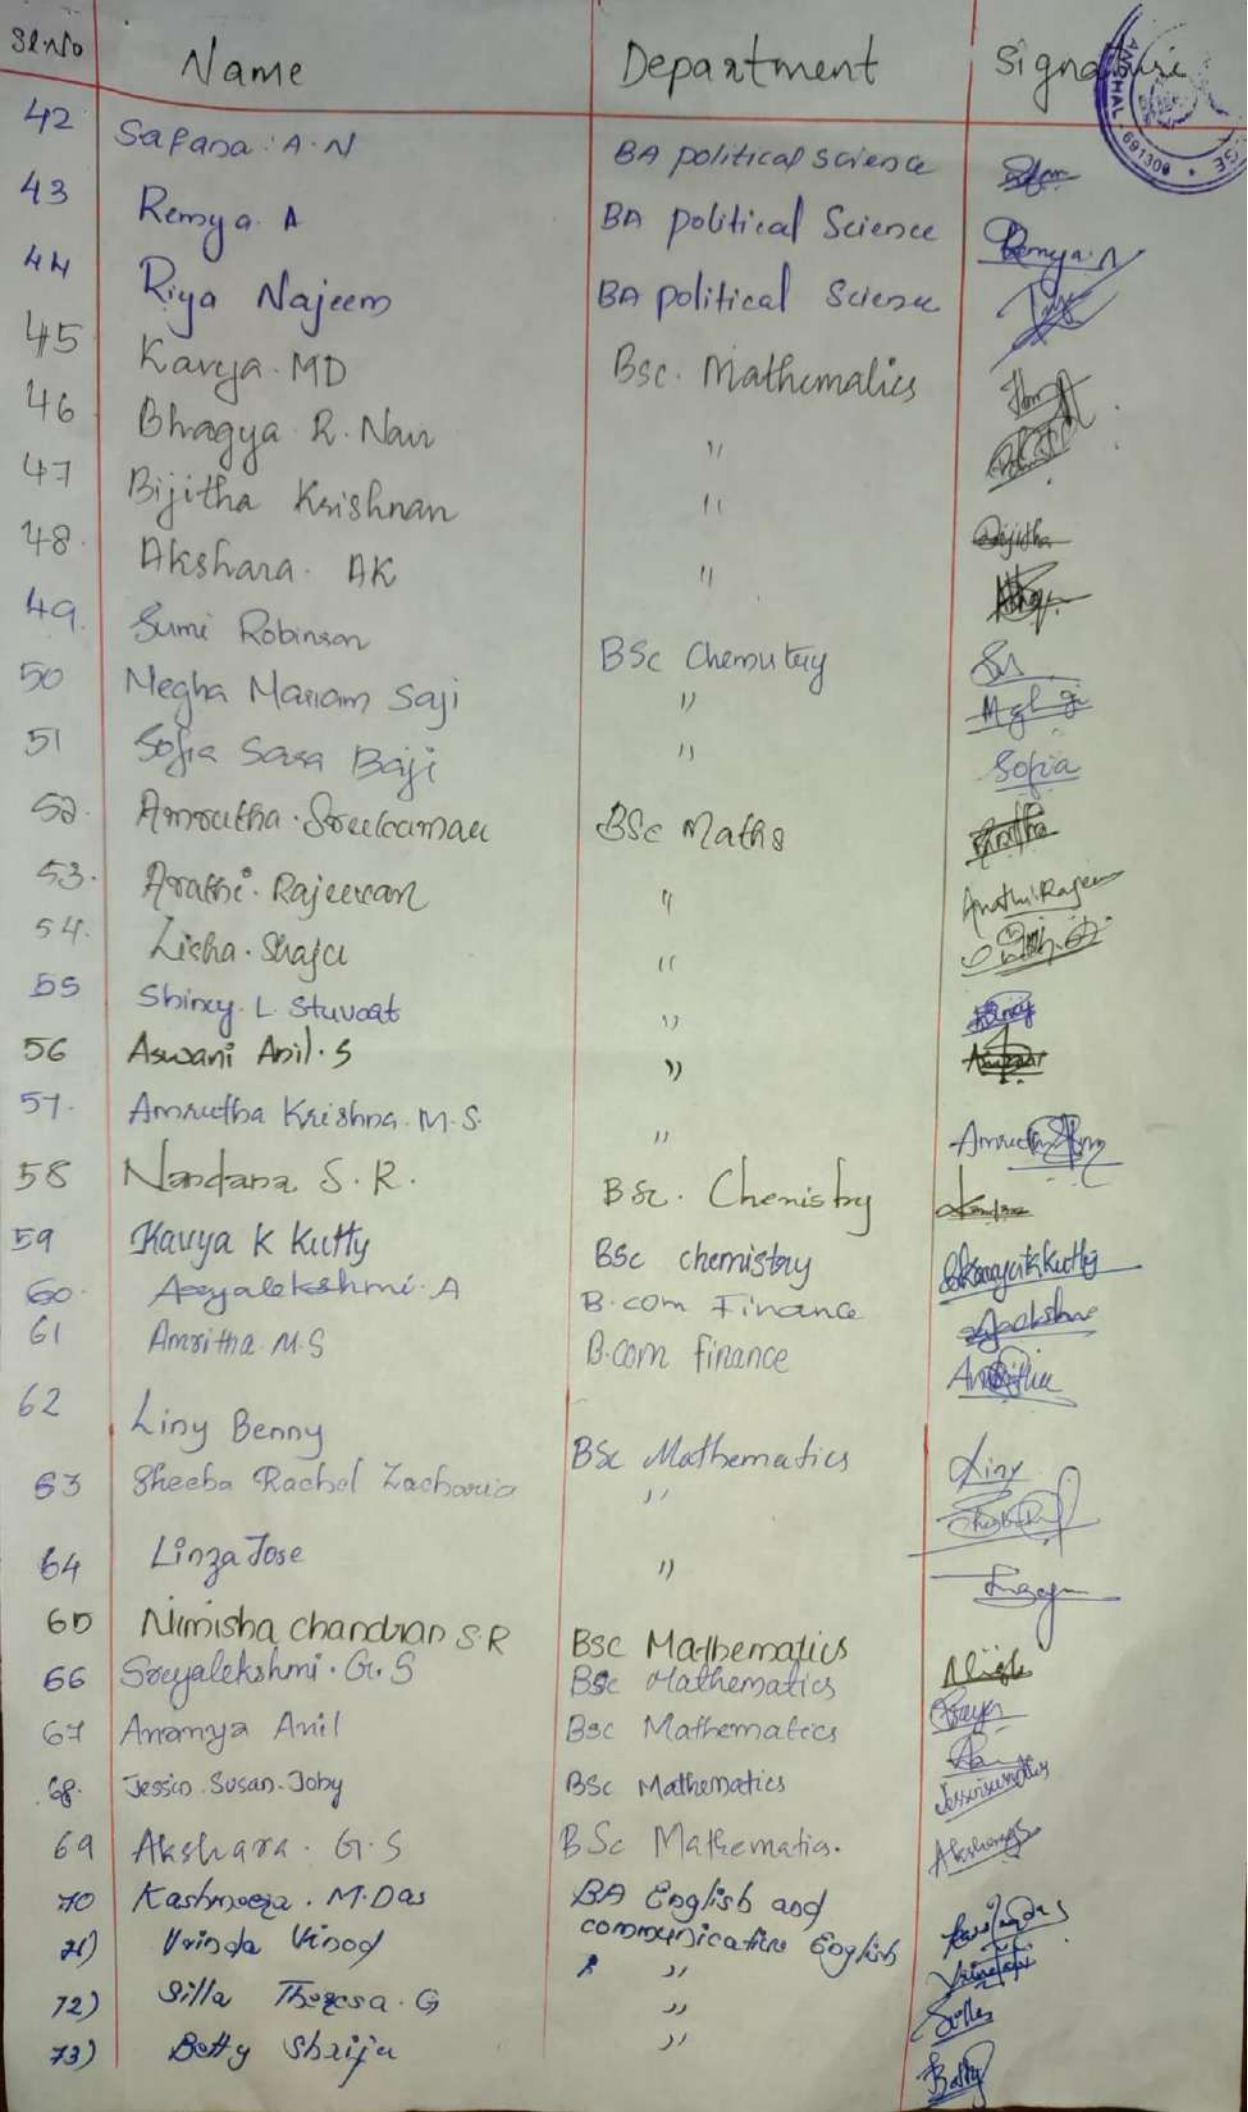 Sl.No Name Department Signature
ANCHAL - 691306
42 Safana. A. N BA political science
43 Remya. A BA political Science Remya. A
44 Riya Najeem BA political Science
45 Kavya. MD Bsc. Mathematics
46 Bhagya R. Nair "
47 Bijitha Krishnan " Bijitha
48. Akshara. AK "
49. Sumi Robinson BSc Chemistry
50 Megha Mariam Saji "
51 Sofia Sara Baji " Sofia
52. Amrutha. Sreekumar BSc Maths
53. Arathi. Rajeevan "
54. Lisha. Shaju "
55 Shincy. L. Stuvart "
56 Aswani Anil. S "
57. Amrutha Krishna. M.S. "
58 Nandana S. R. BSc. Chemistry
59 Kavya K Kutty BSc chemistry Kavya K Kutty
60. Aryalekshmi. A B.com Finance
61 Amritha M.S B.com finance
62 Liny Benny BSc Mathematics Liny
63 Sheeba Rachel Zacharia "
64 Linza Jose "
65 Nimisha chandran S.R BSc Mathematics
66 Sreyalekshmi. G. S BSc Mathematics
67 Ananya Anil Bsc Mathematics
68. Jessin. Susan. Joby BSc Mathematics
69 Akshara. G. S BSc Mathematics. Akshara G S
70 Kashmeera. M. Das BA English and
communicative English
71) Vrinda Vinod "
72) Silla Theresa. G " Silla
73) Betty Shaiju " Betty